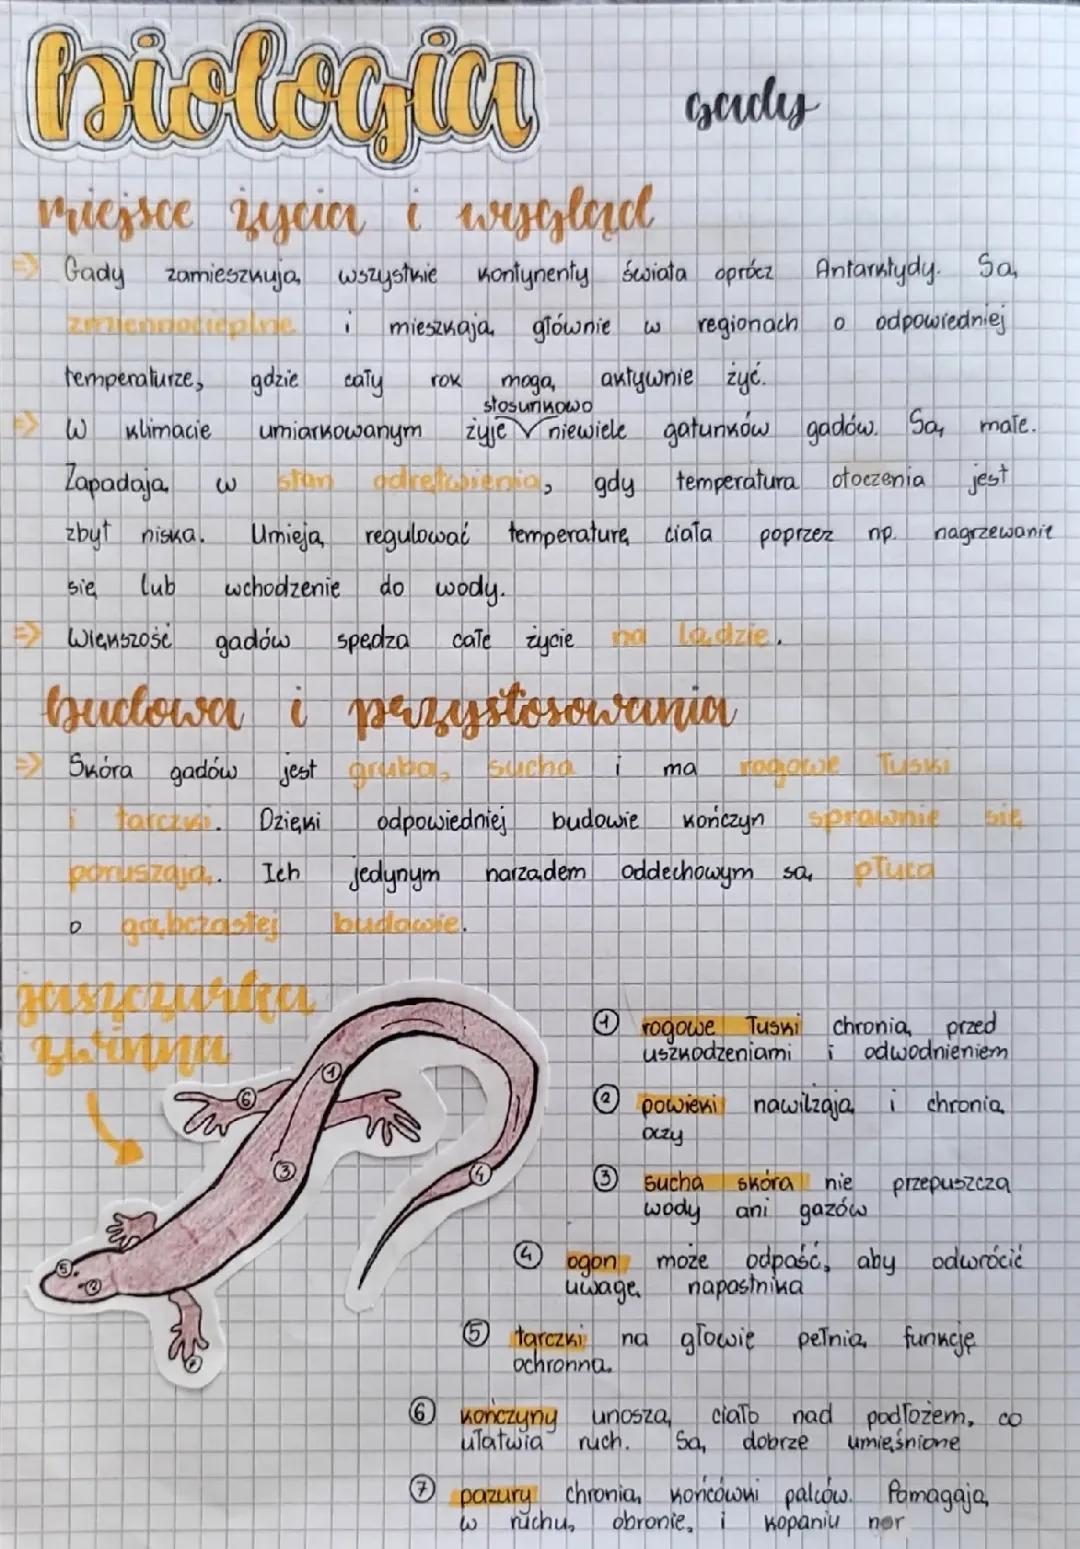 biologia
gady
miejsce życia i wygląd
⇒ Gady zamieszkują wszystkie kontynenty świata oprócz Antarktydy. Są
zmiennocieplne i mieszkają głównie w regionach o odpowiedniej
temperaturze, gdzie cały rok mogą aktywnie żyć.
stosunkowo
⇒ W klimacie umiarkowanym żyje niewiele gatunków gadów. Są małe.
Zapadają w stan odrętwienia, gdy temperatura otoczenia jest
zbyt niska. Umieją regulować temperaturę ciała poprzez np. nagrzewanie
się lub wchodzenie do wody.
⇒ Większość gadów spędza całe życie na lądzie.
budowa i przystosowania
⇒ Skóra gadów jest gruba, sucha i ma rogowe łuski
i tarczki. Dzięki odpowiedniej budowie kończyn sprawnie się
poruszają. Ich jedynym narządem oddechowym są płuca
o gąbczastej budowie.
jaszczurka
zwinna
① rogowe łuski chronią przed
uszkodzeniami i odwodnieniem
② powieki nawilżają i chronią
oczy
③ sucha skóra nie przepuszcza
wody ani gazów
④ ogon może odpaść, aby odwrócić
uwagę napastnika
⑤ tarczki na głowie pełnią funkcję
ochronną.
⑥ kończyny unoszą ciało nad podłożem, co
ułatwia ruch. Są dobrze umięśnione
⑦ pazury chronią końcówki palców. Pomagają
w ruchu, obronie, i kopaniu nor
1
6
3
4
5
2
7